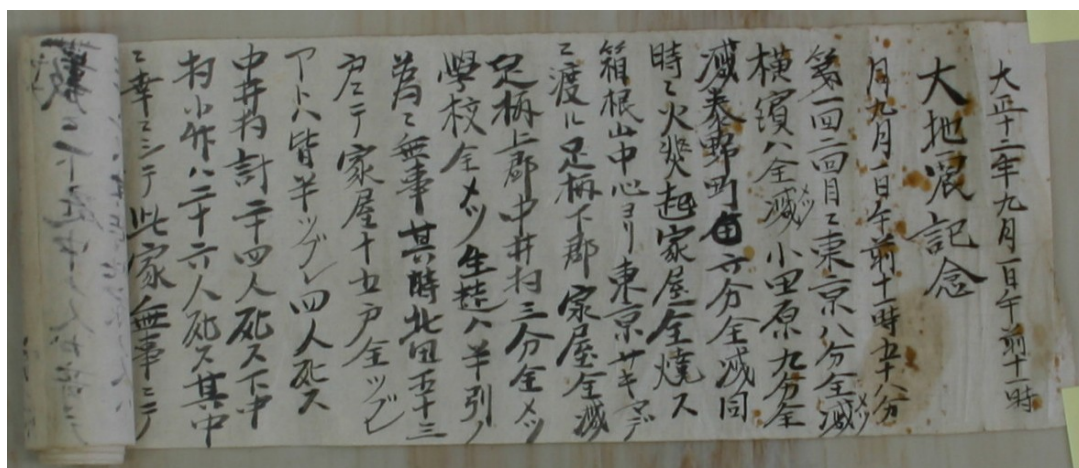 大正十二年九月一日午前十一時
大地震記念
月九月一日午前十一時五十八分
第一回二回目ニ東京八分全滅メツ
横濱ハ全滅メツ小田原九分全
滅秦野町六分全滅同
時ニ火災起家屋全焼ス
箱根山中心ヨリ東京サキマデ
ニ渡ル足柄下郡家屋全滅
足柄上郡中井村三分全メツ
學校全メツ生徒ハ半引ノ
為ニ無事其時北田五十三
戸ニテ家屋十五戸全ツブレ
アトハ皆半ツブレ四人死ス
中井村計二十四人死ス下中
村小竹ハ二十六人死ス其中
ニ幸ニシテ此家無事ニテ